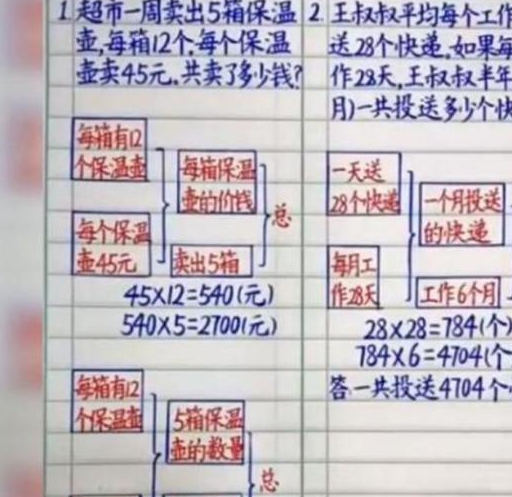 1.超市一周卖出5箱保温
壶,每箱12个,每个保温
壶卖45元.共卖了多少钱?
每箱有12
个保温壶
每箱保温
壶的价钱
每个保温
壶45元
卖出5箱
总
45×12=540(元)
540×5=2700(元)
每箱有12
个保温壶
5箱保温
壶的数量
总
2.王叔叔平均每个工作
送28个快递,如果每
作28天,王叔叔半年
月)一共投送多少个快
一天送
28个快递
一个月投送
的快递
每月工
作28天
工作6个月
28×28=784(个)
784×6=4704(个
答一共投送4704个